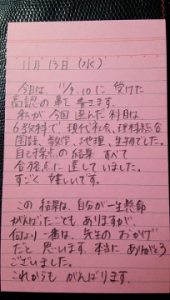 11月13日(水)
今日は、11/9.10に受けた
高認の事を書きます。
私が今回選んだ科目は
6教科で、現代社会、理科総合
国語、数学、地理、生物でした。
自己採点の結果 すべて
合格点に達していました。
すごく嬉しいです。
この結果は、自分が一生懸命
がんばったこともありますが、
何より一番は、先生のおかげ
だと思います。本当にありがとう
ございました。
これからもがんばります。